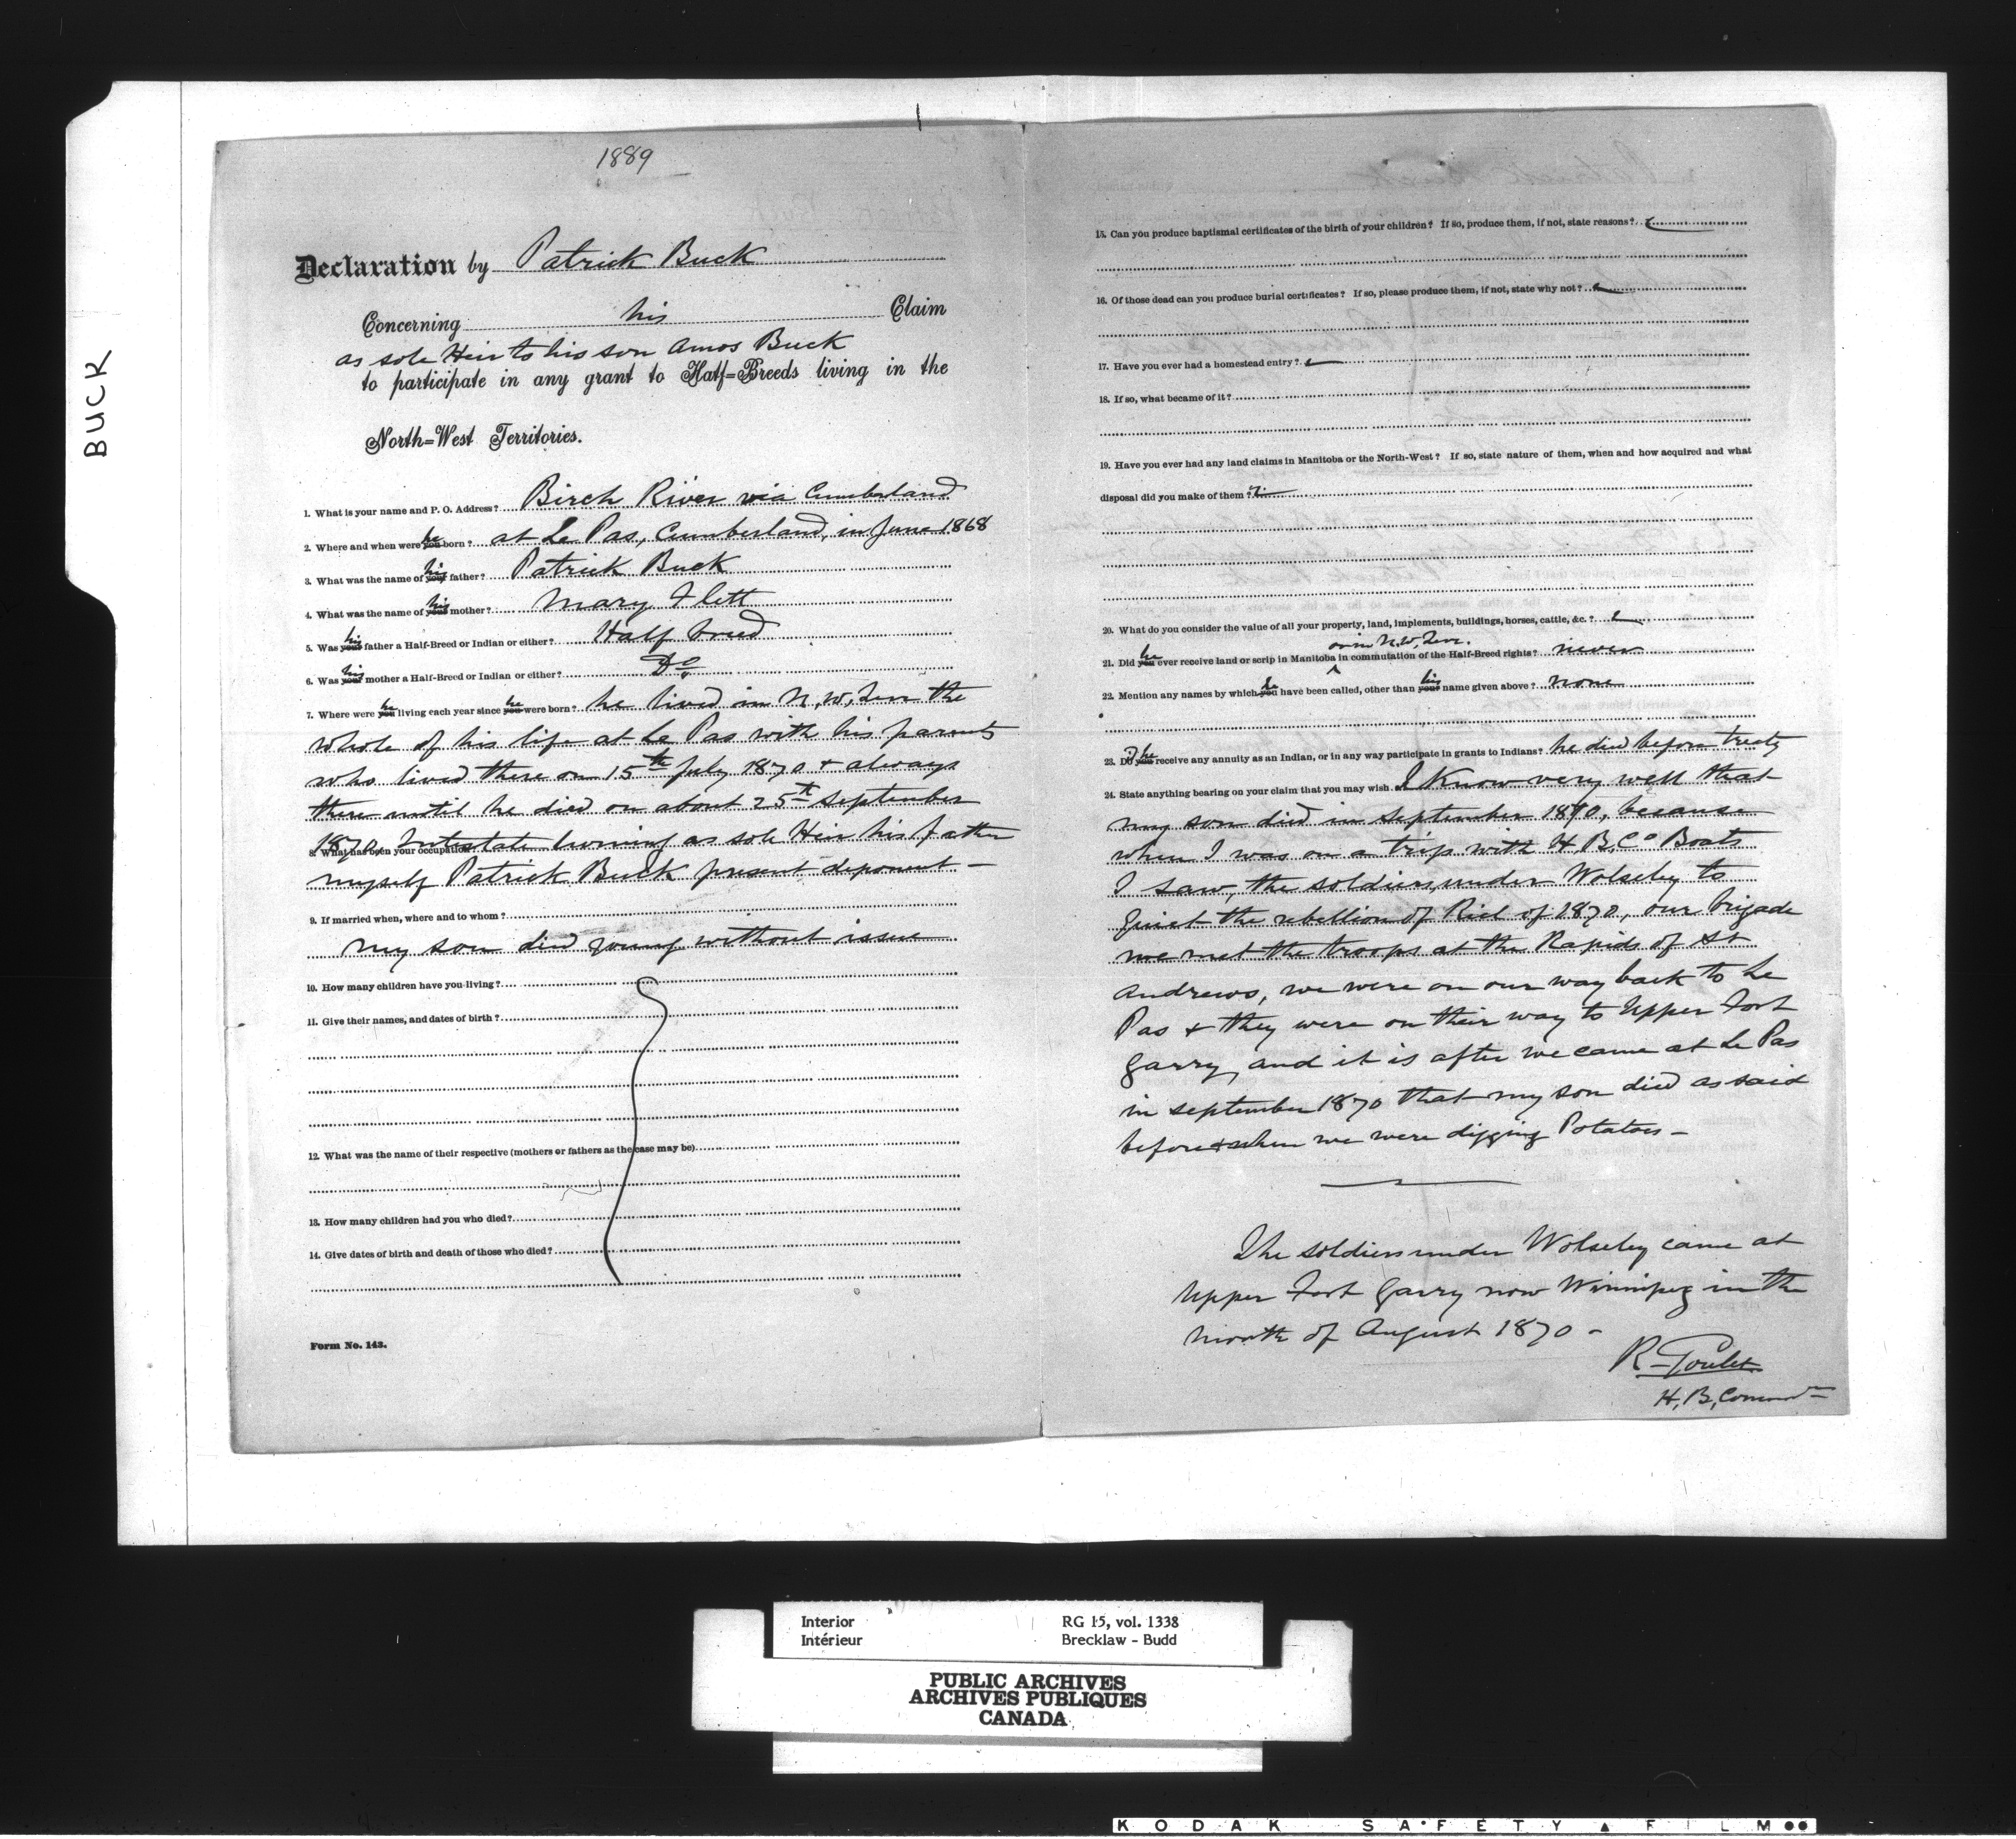 BUCK
1889
Declaration by Patrick Buck
Concerning his Claim
as sole Heir to his son Amos Buck
to participate in any grant to Half=Breeds living in the
North=West Territories.
1. What is your name and P. O. Address? Birch River via Cumberland
2. Where and when were you he born? at Le Pas, Cumberland, in June 1868
3. What was the name of your his father? Patrick Buck
4. What was the name of your his mother? Mary Flett
5. Was your his father a Half-Breed or Indian or either? Half breed
6. Was your his mother a Half-Breed or Indian or either? Do
7. Where were you he living each year since you he were born? he lived in N. W. Terr the
whole of his life at Le Pas with his parents
who lived there on 15th July 1870 & always
there until he died on about 25th September
1870, Intestate leaving as sole Heir his father
8. What has been your occupation
myself Patrick Buck present deponent —
9. If married when, where and to whom?
my son died young without issue
10. How many children have you living?
11. Give their names, and dates of birth?
12. What was the name of their respective (mothers or fathers as the case may be)
13. How many children had you who died?
14. Give dates of birth and death of those who died?
Form No. 143.
15. Can you produce baptismal certificates of the birth of your children? If so, produce them, if not, state reasons?
16. Of those dead can you produce burial certificates? If so, please produce them, if not, state why not?
17. Have you ever had a homestead entry?
18. If so, what became of it?
19. Have you ever had any land claims in Manitoba or the North-West? If so, state nature of them, when and how acquired and what
disposal did you make of them?
20. What do you consider the value of all your property, land, implements, buildings, horses, cattle, &c.?
or in N. W. Terr.
21. Did you he ever receive land or scrip in Manitoba in commutation of the Half-Breed rights? never
22. Mention any names by which you he have been called, other than your his name given above? none
23. Did you he receive any annuity as an Indian, or in any way participate in grants to Indians? he died before treaty
24. State anything bearing on your claim that you may wish. I Know very well that
my son died in September 1870, because
when I was on a trip with H. B. Co Boats
I saw, the soldiers under Wolseley to
Quiet the rebellion of Riel of 1870, our brigade
we met the troops at the Rapids of St
Andrews, we were on our way back to Le
Pas & they were on their way to Upper Fort
Garry, and it is after we came at Le Pas
in September 1870 that my son died as said
before & when we were digging Potatoes —
The soldiers under Wolseley came at
Upper Fort Garry now Winnipeg in the
month of August 1870 —
R. Goulet
H. B. Comr
Interior
Intérieur
RG 15, vol. 1338
Brecklaw - Budd
PUBLIC ARCHIVES
ARCHIVES PUBLIQUES
CANADA
KODAK SAFETY ▲ FILM ●●